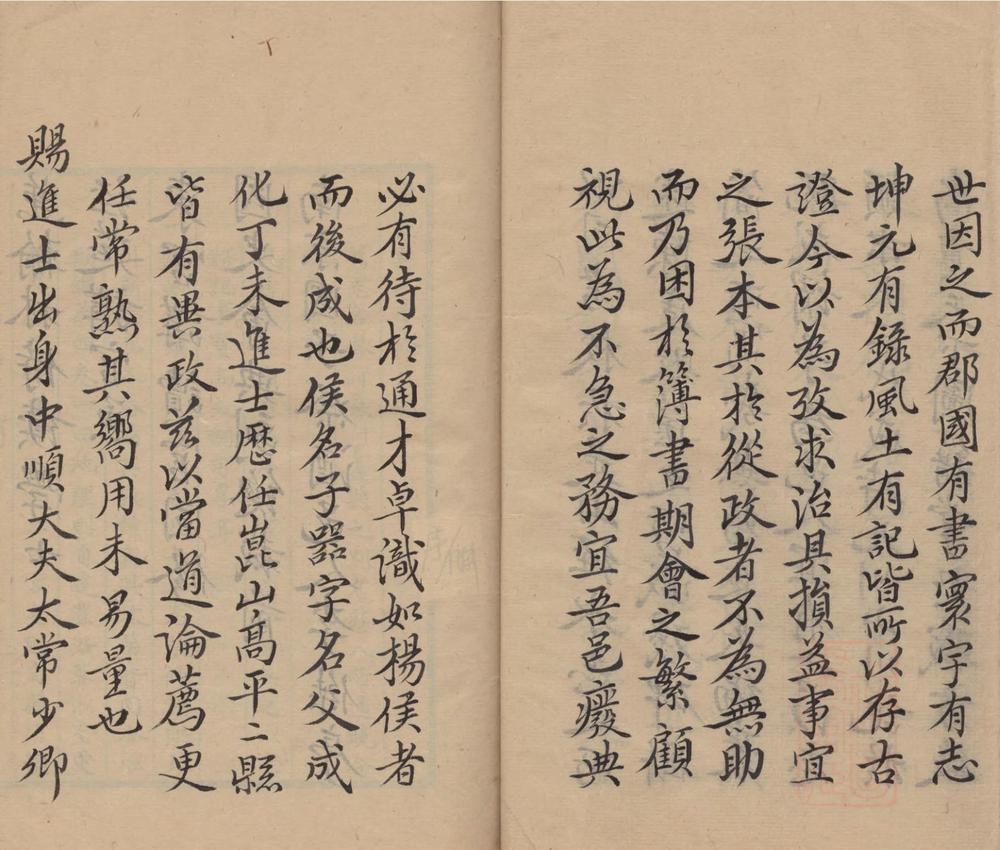 世因之而郡國有書寰宇有志
坤元有錄風土有記皆所以存古
證今以為攷求治具損益事宜
之張本其於從政者不為無助
而乃困於簿書期會之繁顧
視此為不急之務宜吾邑廢典
必有待於通才卓識如楊侯者
而後成也侯名子器字名父成
化丁未進士歷任崑山高平二縣
皆有異政茲以當道論薦更
任常熟其嚮用未易量也
賜進士出身中順大夫太常少卿